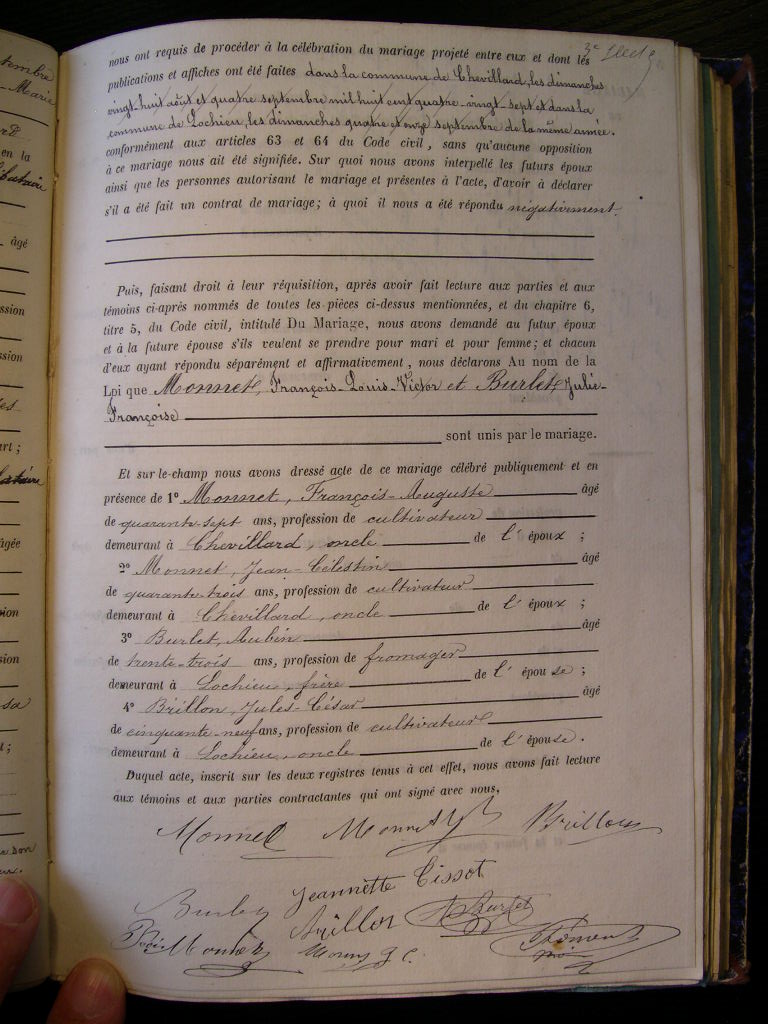 3e
nous ont requis de procéder à la célébration du mariage projeté entre eux et dont les
publications et affiches ont été faites dans la commune de Chevillard, les dimanches
vingt-huit août et quatre septembre mil huit cent quatre-vingt-sept et dans la
commune de Lochieu, les dimanches quatre et onze septembre de la même année.
conformément aux articles 63 et 64 du Code civil, sans qu'aucune opposition
à ce mariage nous ait été signifiée. Sur quoi nous avons interpellé les futurs époux
ainsi que les personnes autorisant le mariage et présentes à l'acte, d'avoir à déclarer
s'il a été fait un contrat de mariage; à quoi il nous a été répondu négativement.
Puis, faisant droit à leur réquisition, après avoir fait lecture aux parties et aux
témoins ci-après nommés de toutes les pièces ci-dessus mentionnées, et du chapitre 6,
titre 5, du Code civil, intitulé Du Mariage, nous avons demandé au futur époux
et à la future épouse s'ils veulent se prendre pour mari et pour femme; et chacun
d'eux ayant répondu séparément et affirmativement, nous déclarons Au nom de la
Loi que Monnet, François-Louis-Victor et Burlet, Julie-
Françoise
sont unis par le mariage.
Et sur-le-champ nous avons dressé acte de ce mariage célébré publiquement et en
présence de 1o Monnet, François-Auguste âgé
de quarante-sept ans, profession de cultivateur
demeurant à Chevillard, oncle de l'époux ;
2o Monnet, Jean-Célestin âgé
de quarante-trois ans, profession de cultivateur
demeurant à Chevillard, oncle de l'époux ;
3o Burlet, Aubin âgé
de trente-trois ans, profession de fromager
demeurant à Lochieu, frère de l'épouse ;
4o Brillon, Jules-César âgé
de cinquante-neuf ans, profession de cultivateur
demeurant à Lochieu, oncle de l'épouse.
Duquel acte, inscrit sur les deux registres tenus à cet effet, nous avons fait lecture
aux témoins et aux parties contractantes qui ont signé avec nous,
Monnet Monnet Brillon
Jeannette Tissot
Burlet
Monnet J. C.